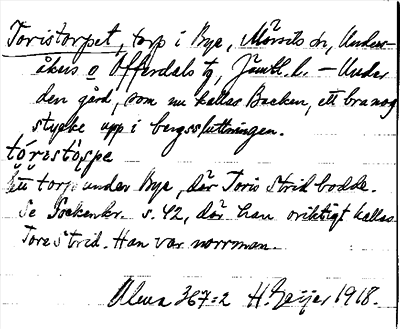 Toristorpet, torp i Bye, Mörsils sn, Unders-
åkers o Offerdals tg, Jämtl. l. – Under
den gård, som nu kallas Backen, ett bra nog
stycke upp i bergssluttningen.
tóristòrpe
Ett torp under Bye, där Toris Strid bodde.
Se Sockenkr. s. 42, där han oriktigt kallas
Tore Strid. Han var norrman.
Ulma 367:2 H. Geijer 1918.